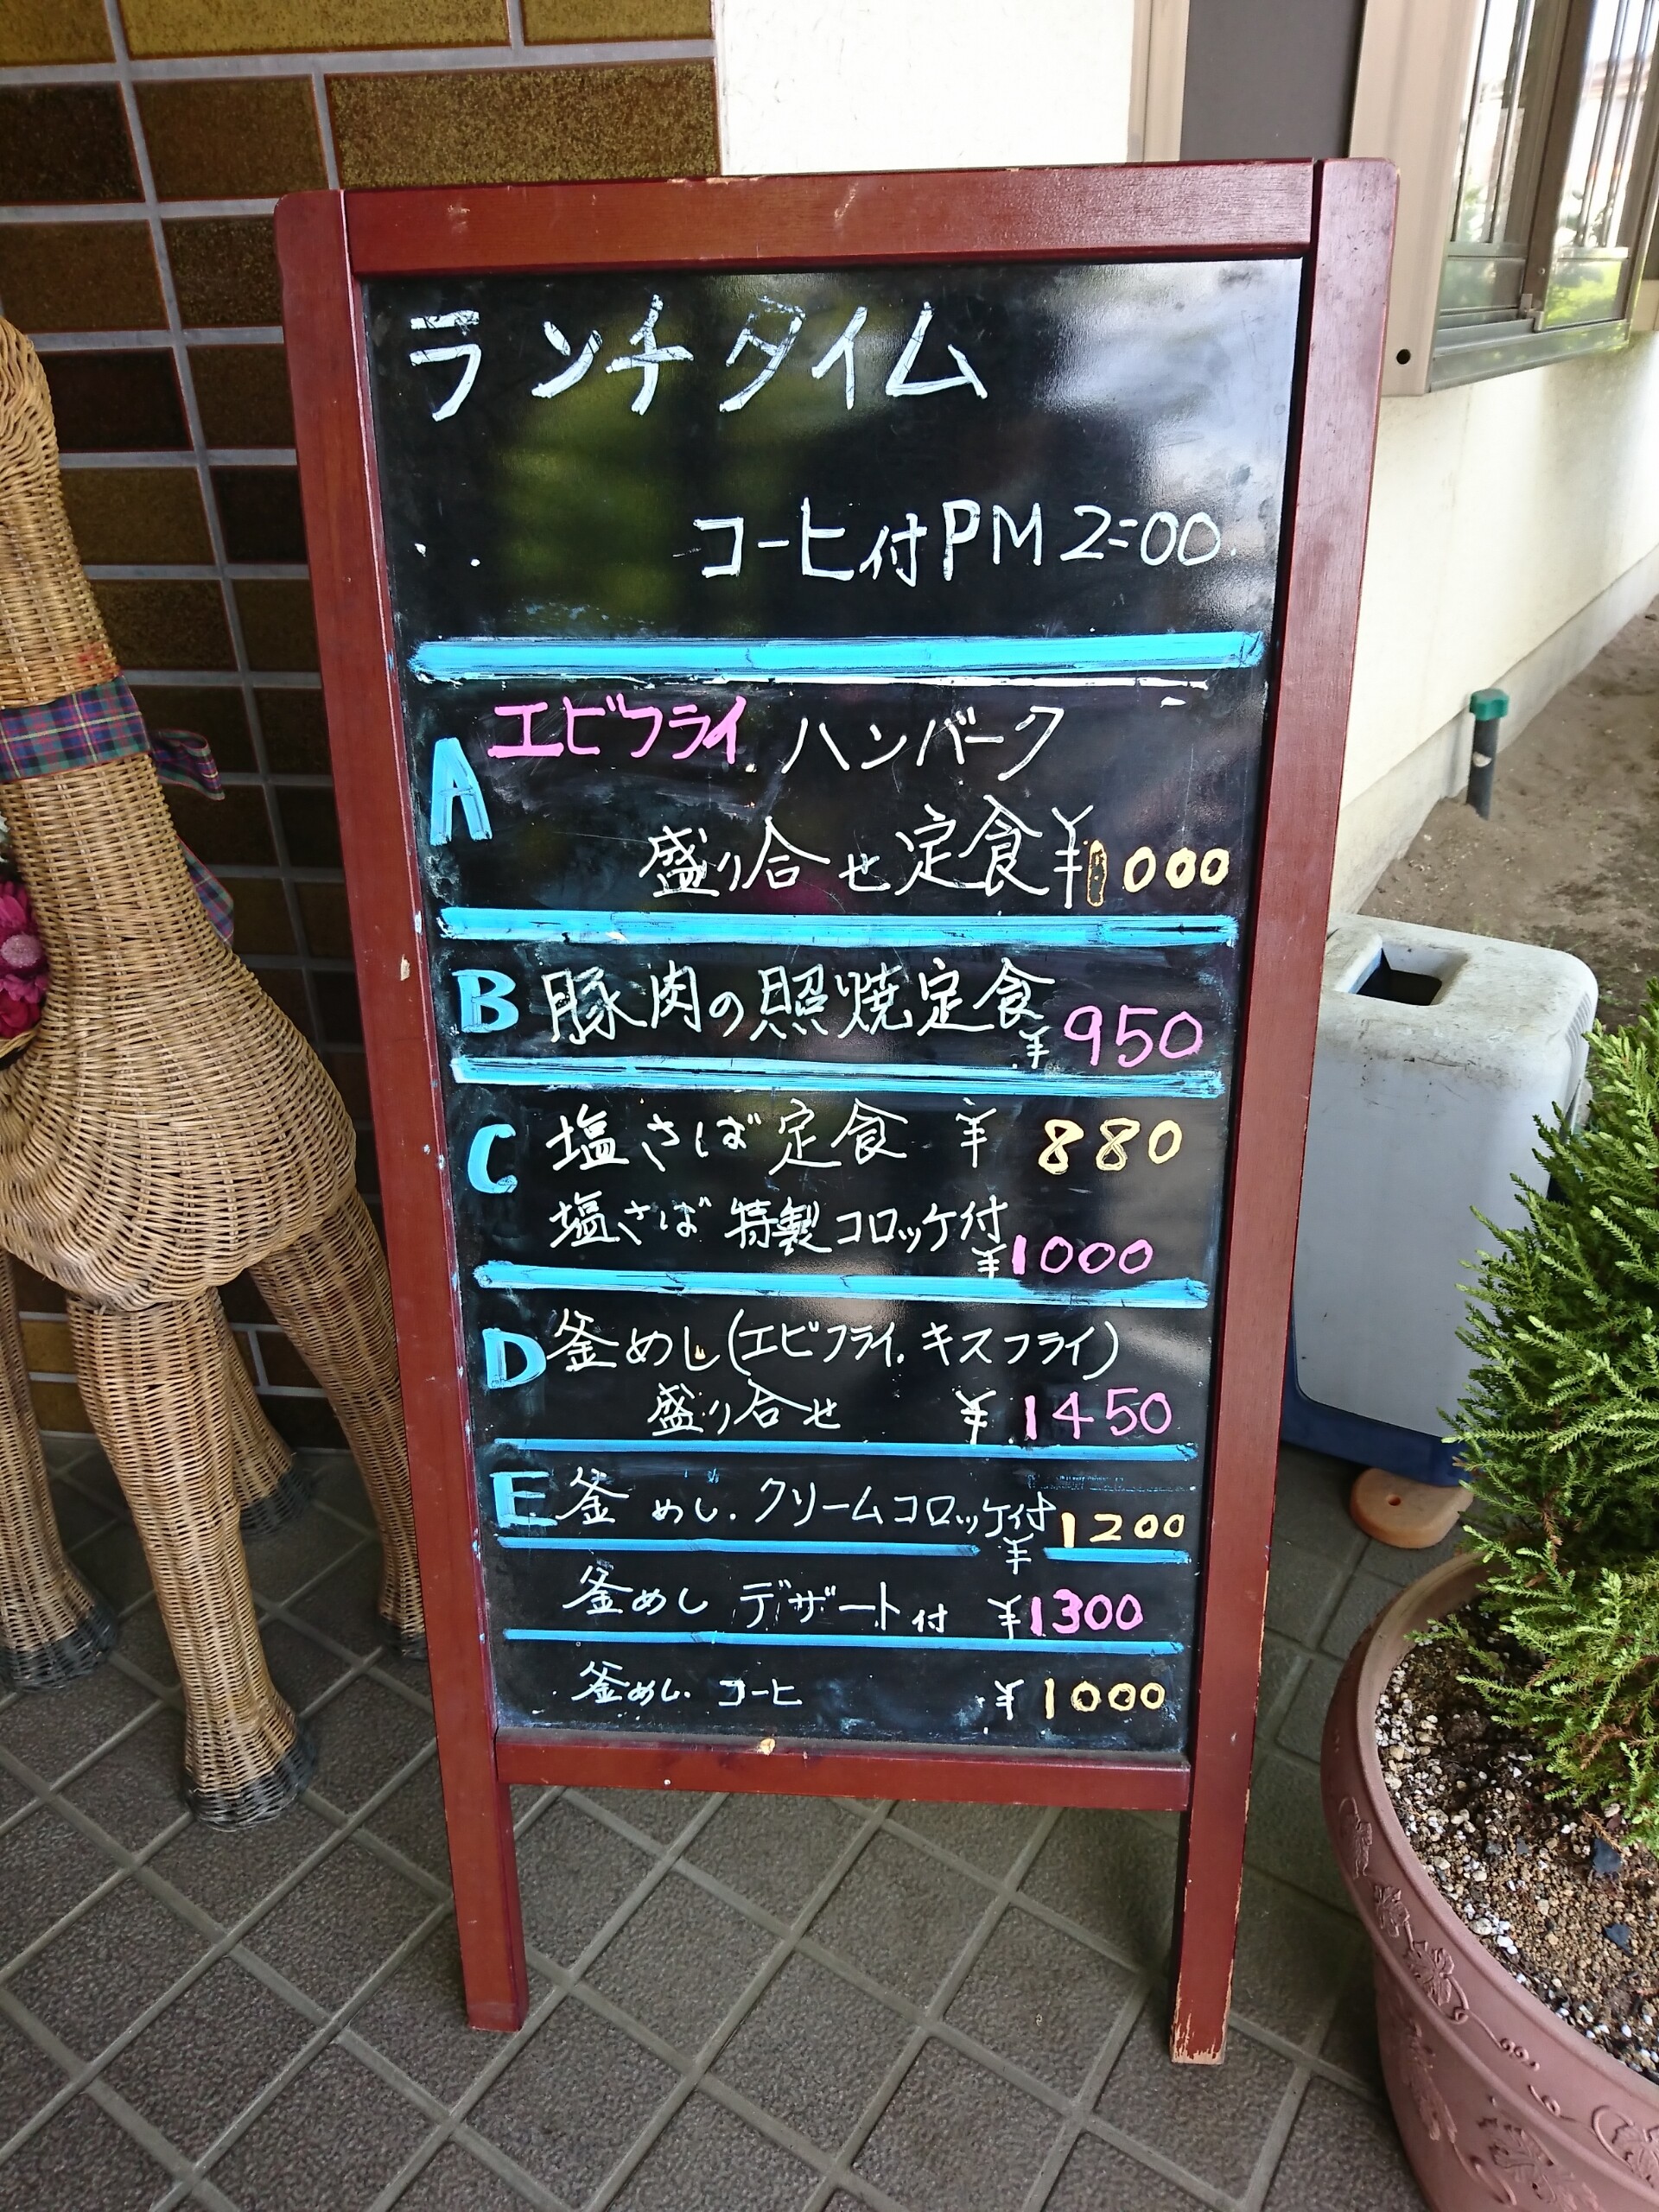 ランチタイム
コーヒ付PM2:00
A エビフライ.ハンバーク
盛り合せ定食¥1000
B 豚肉の照焼定食¥950
C 塩さば定食 ¥880
塩さば特製コロッケ付¥1000
D 釜めし(エビフライ.キスフライ)
盛り合せ ¥1450
E 釜めし.クリームコロッケ付¥1200
釜めし デザート付 ¥1300
釜めし.コーヒ ¥1000